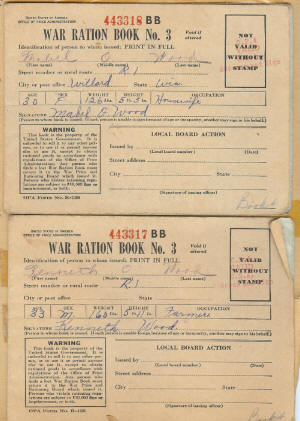 UNITED STATES OF AMERICA
OFFICE OF PRICE ADMINISTRATION
443318 BB
WAR RATION BOOK No. 3
Void if altered
NOT VALID WITHOUT STAMP
Identification of person to whom issued: PRINT IN FULL
Mabel E Wood
(First name) (Middle name) (Last name)
Street number or rural route R1
City or post office Willard State Wis.
AGE SEX WEIGHT HEIGHT OCCUPATION
30 F 126 Lbs. 5 Ft. 5 In. Housewife
SIGNATURE Mabel E Wood
(Person to whom book is issued. If such person is unable to sign because of age or incapacity, another may sign in his behalf.)
WARNING
This book is the property of the United States Government. It is unlawful to sell it to any other person, or to use it or permit anyone else to use it, except to obtain rationed goods in accordance with regulations of the Office of Price Administration. Any person who finds a lost War Ration Book must return it to the War Price and Rationing Board which issued it. Persons who violate rationing regulations are subject to $10,000 fine or imprisonment, or both.
LOCAL BOARD ACTION
Issued by
(Local board number) (Date)
Street address
City State
(Signature of issuing officer)
OPA Form No. R-130
UNITED STATES OF AMERICA
OFFICE OF PRICE ADMINISTRATION
443317 BB
WAR RATION BOOK No. 3
Void if altered
NOT VALID WITHOUT STAMP
Identification of person to whom issued: PRINT IN FULL
Kenneth Wood
(First name) (Middle name) (Last name)
Street number or rural route R1
City or post office State
AGE SEX WEIGHT HEIGHT OCCUPATION
33 M 160 Lbs. 5 Ft. 11 In. Farmer
SIGNATURE Kenneth Wood
(Person to whom book is issued. If such person is unable to sign because of age or incapacity, another may sign in his behalf.)
WARNING
This book is the property of the United States Government. It is unlawful to sell it to any other person, or to use it or permit anyone else to use it, except to obtain rationed goods in accordance with regulations of the Office of Price Administration. Any person who finds a lost War Ration Book must return it to the War Price and Rationing Board which issued it. Persons who violate rationing regulations are subject to $10,000 fine or imprisonment, or both.
LOCAL BOARD ACTION
Issued by
(Local board number) (Date)
Street address
City State
(Signature of issuing officer)
OPA Form No. R-130